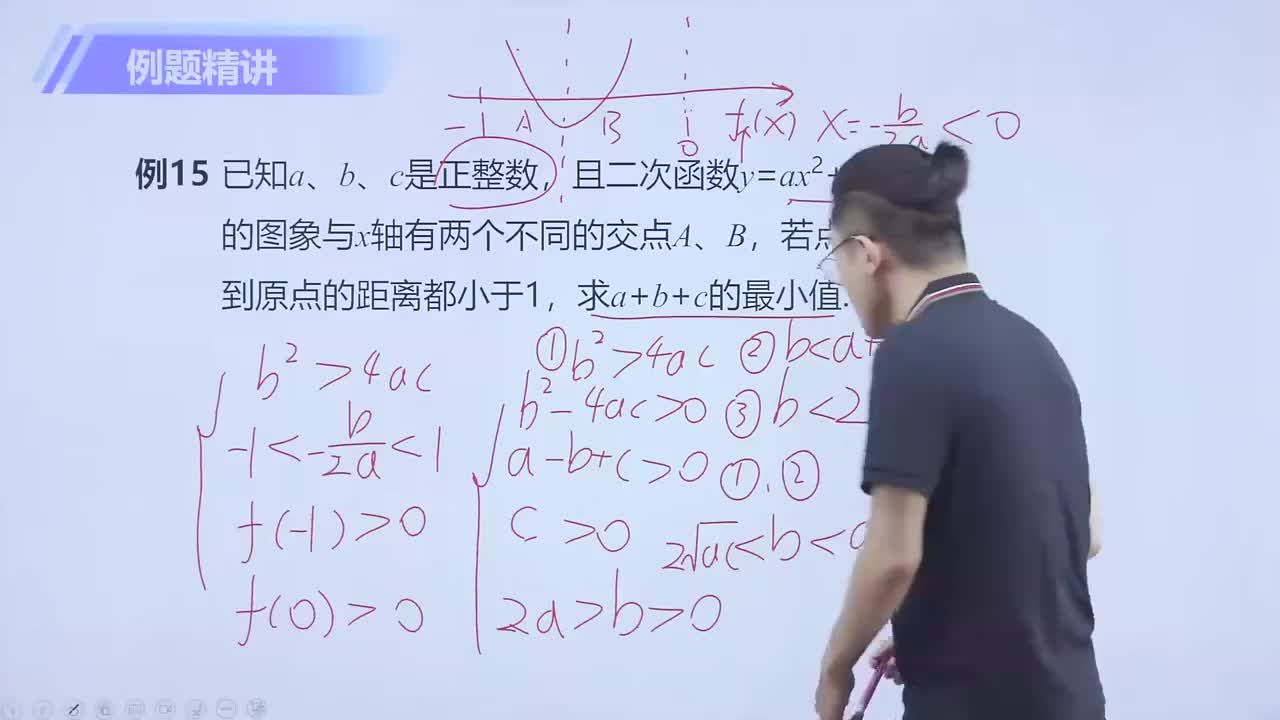 例题精讲
-1 A B 0 f(x) x=-b/2a<0
例15 已知a、b、c是正整数，且二次函数y=ax²+
的图象与x轴有两个不同的交点A、B，若点
到原点的距离都小于1，求a+b+c的最小值.
b²>4ac
-1<-b/2a<1
f(-1)>0
f(0)>0
①b²>4ac ②b<a+
b²-4ac>0 ③b<2
a-b+c>0 ①、②
c>0 2√ac<b<
2a>b>0